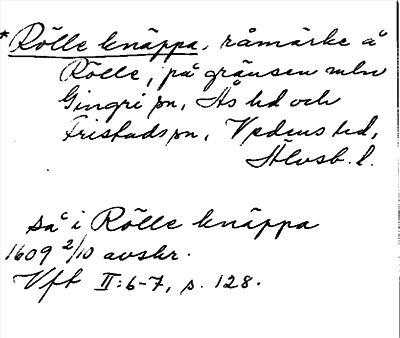 *Rölle knäppa, råmärke å
Rölle, på gränsen mln
Gingri sn, Ås hd och
Fristads sn, Vedens hd,
Älvsb. l.
så i Rölle knäppa
1609 2/10 avskr.
Vft II:6-7, s. 128.